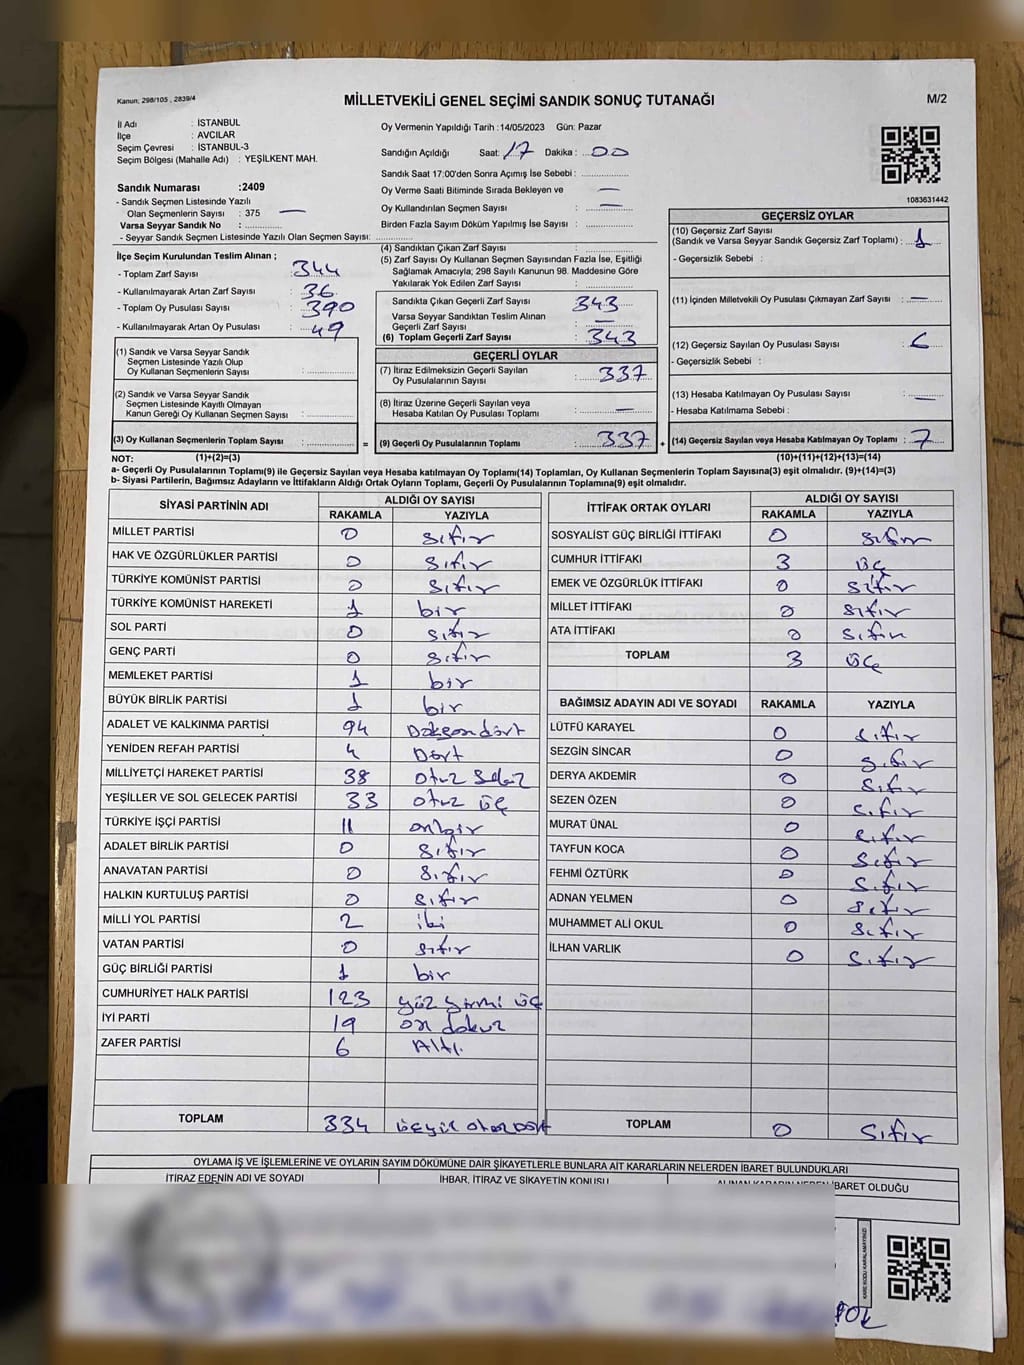 Kanun, 298/105 , 2839/4
MİLLETVEKİLİ GENEL SEÇİMİ SANDIK SONUÇ TUTANAĞI
M/2
İl Adı : İSTANBUL
İlçe : AVCILAR
Seçim Çevresi : İSTANBUL-3
Seçim Bölgesi (Mahalle Adı) : YEŞİLKENT MAH.
Sandık Numarası :2409
- Sandık Seçmen Listesinde Yazılı
Olan Seçmenlerin Sayısı : 375 —
Varsa Seyyar Sandık No :
- Seyyar Sandık Seçmen Listesinde Yazılı Olan Seçmen Sayısı:
Oy Vermenin Yapıldığı Tarih :14/05/2023 Gün: Pazar
Sandığın Açıldığı Saat: 17 Dakika : 00
Sandık Saat 17:00'den Sonra Açımış İse Sebebi :
Oy Verme Saati Bitiminde Sırada Bekleyen ve —
Oy Kullandırılan Seçmen Sayısı : —
Birden Fazla Sayım Döküm Yapılmış İse Sayısı :
1083631442
İlçe Seçim Kurulundan Teslim Alınan ;
- Toplam Zarf Sayısı : 344
- Kullanılmayarak Artan Zarf Sayısı : 36
- Toplam Oy Pusulası Sayısı : 390
- Kullanılmayarak Artan Oy Pusulası : 49
(1) Sandık ve Varsa Seyyar Sandık
Seçmen Listesinde Yazılı Olup
Oy Kullanan Seçmenlerin Sayısı :
(2) Sandık ve Varsa Seyyar Sandık
Seçmen Listesinde Kayıtlı Olmayan
Kanun Gereği Oy Kullanan Seçmen Sayısı :
(3) Oy Kullanan Seçmenlerin Toplam Sayısı :
(4) Sandıktan Çıkan Zarf Sayısı :
(5) Zarf Sayısı Oy Kullanan Seçmen Sayısından Fazla İse, Eşitliği
Sağlamak Amacıyla; 298 Sayılı Kanunun 98. Maddesine Göre
Yakılarak Yok Edilen Zarf Sayısı :
Sandıkta Çıkan Geçerli Zarf Sayısı : 343
Varsa Seyyar Sandıktan Teslim Alınan
Geçerli Zarf Sayısı : —
(6) Toplam Geçerli Zarf Sayısı : 343
GEÇERLİ OYLAR
(7) İtiraz Edilmeksizin Geçerli Sayılan
Oy Pusulalarının Sayısı : 337
(8) İtiraz Üzerine Geçerli Sayılan veya
Hesaba Katılan Oy Pusulası Toplamı : —
= (9) Geçerli Oy Pusulalarının Toplamı : 337 +
GEÇERSİZ OYLAR
(10) Geçersiz Zarf Sayısı
(Sandık ve Varsa Seyyar Sandık Geçersiz Zarf Toplamı) : 1
- Geçersizlik Sebebi :
(11) İçinden Milletvekili Oy Pusulası Çıkmayan Zarf Sayısı : —
(12) Geçersiz Sayılan Oy Pusulası Sayısı : 6
- Geçersizlik Sebebi :
(13) Hesaba Katılmayan Oy Pusulası Sayısı : —
- Hesaba Katılmama Sebebi :
(14) Geçersiz Sayılan veya Hesaba Katılmayan Oy Toplamı : 7
NOT: (1)+(2)=(3)
(10)+(11)+(12)+(13)=(14)
a- Geçerli Oy Pusulalarının Toplamı(9) ile Geçersiz Sayılan veya Hesaba katılmayan Oy Toplamı(14) Toplamları, Oy Kullanan Seçmenlerin Toplam Sayısına(3) eşit olmalıdır. (9)+(14)=(3)
b- Siyasi Partilerin, Bağımsız Adayların ve İttifakların Aldığı Ortak Oyların Toplamı, Geçerli Oy Pusulalarının Toplamına(9) eşit olmalıdır.
SİYASİ PARTİNİN ADI ALDIĞI OY SAYISI
RAKAMLA YAZIYLA
MİLLET PARTİSİ 0 sıfır
HAK VE ÖZGÜRLÜKLER PARTİSİ 0 sıfır
TÜRKİYE KOMÜNİST PARTİSİ 0 sıfır
TÜRKİYE KOMÜNİST HAREKETİ 1 bir
SOL PARTİ 0 sıfır
GENÇ PARTİ 0 sıfır
MEMLEKET PARTİSİ 1 bir
BÜYÜK BİRLİK PARTİSİ 1 bir
ADALET VE KALKINMA PARTİSİ 94 Doksandört
YENİDEN REFAH PARTİSİ 4 Dört
MİLLİYETÇİ HAREKET PARTİSİ 38 otuz sekiz
YEŞİLLER VE SOL GELECEK PARTİSİ 33 otuz üç
TÜRKİYE İŞÇİ PARTİSİ 11 onbir
ADALET BİRLİK PARTİSİ 0 sıfır
ANAVATAN PARTİSİ 0 sıfır
HALKIN KURTULUŞ PARTİSİ 0 sıfır
MİLLİ YOL PARTİSİ 2 iki
VATAN PARTİSİ 0 sıfır
GÜÇ BİRLİĞİ PARTİSİ 1 bir
CUMHURİYET HALK PARTİSİ 123 yüz yirmi üç
İYİ PARTİ 19 on dokuz
ZAFER PARTİSİ 6 Altı
TOPLAM 334 üçyüz otuzDört
İTTİFAK ORTAK OYLARI ALDIĞI OY SAYISI
RAKAMLA YAZIYLA
SOSYALİST GÜÇ BİRLİĞİ İTTİFAKI 0 sıfır
CUMHUR İTTİFAKI 3 üç
EMEK VE ÖZGÜRLÜK İTTİFAKI 0 sıfır
MİLLET İTTİFAKI 0 sıfır
ATA İTTİFAKI 0 sıfır
TOPLAM 3 üç
BAĞIMSIZ ADAYIN ADI VE SOYADI RAKAMLA YAZIYLA
LÜTFÜ KARAYEL 0 sıfır
SEZGİN SİNCAR 0 sıfır
DERYA AKDEMİR 0 sıfır
SEZEN ÖZEN 0 sıfır
MURAT ÜNAL 0 sıfır
TAYFUN KOCA 0 sıfır
FEHMİ ÖZTÜRK 0 sıfır
ADNAN YELMEN 0 sıfır
MUHAMMET ALİ OKUL 0 sıfır
İLHAN VARLIK 0 sıfır
TOPLAM 0 sıfır
OYLAMA İŞ VE İŞLEMLERİNE VE OYLARIN SAYIM DÖKÜMÜNE DAİR ŞİKAYETLERLE BUNLARA AİT KARARLARIN NELERDEN İBARET BULUNDUKLARI
İTİRAZ EDENİN ADI VE SOYADI İHBAR, İTİRAZ VE ŞİKAYETİN KONUSU ALINAN KARARIN NEDEN İBARET OLDUĞU
KARE KODU KARALAMAYINIZ